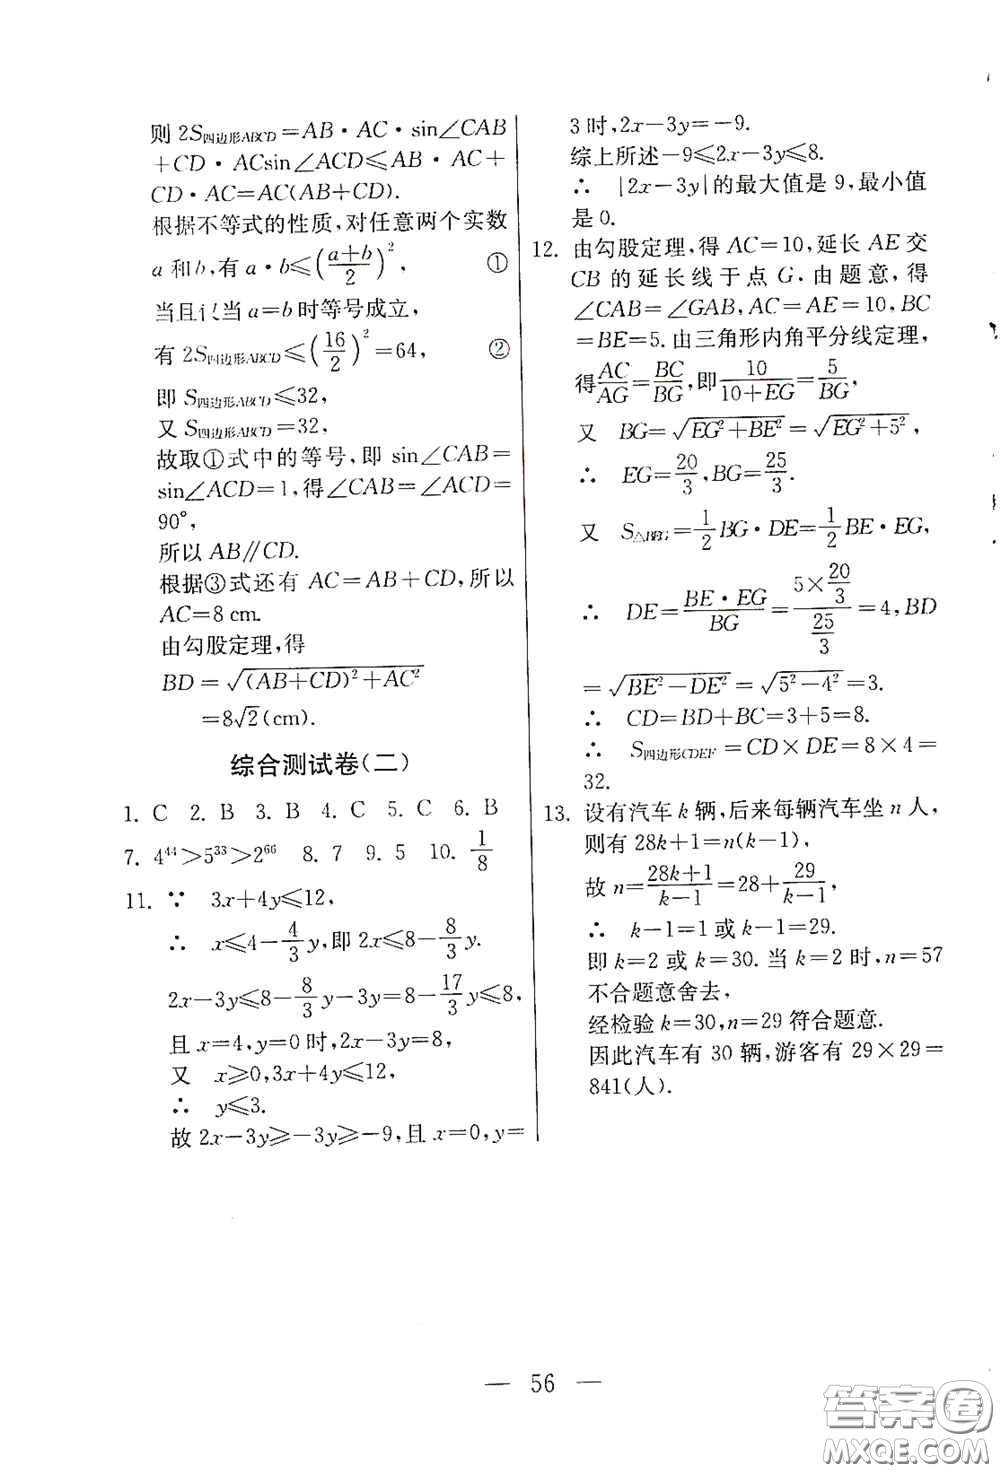 则 2S四边形ABCD=AB·AC·sin∠CAB
+CD·ACsin∠ACD≤AB·AC+
CD·AC=AC(AB+CD).
根据不等式的性质,对任意两个实数
a 和 b,有 a·b≤((a+b)/2)², ①
当且仅当 a=b 时等号成立,
有 2S四边形ABCD≤(16/2)²=64, ②
即 S四边形ABCD≤32,
又 S四边形ABCD=32,
故取①式中的等号,即 sin∠CAB=
sin∠ACD=1,得∠CAB=∠ACD=
90°,
所以 AB∥CD.
根据③式还有 AC=AB+CD,所以
AC=8 cm.
由勾股定理,得
BD=√((AB+CD)²+AC²)
=8√2(cm).
综合测试卷(二)
1. C 2. B 3. B 4. C 5. C 6. B
7. 4⁴⁴>5³³>2⁶⁶ 8. 7 9. 5 10. 1/8
11. ∵ 3x+4y≤12,
∴ x≤4-4/3y,即 2x≤8-8/3y.
2x-3y≤8-8/3y-3y=8-17/3y≤8,
且 x=4,y=0 时,2x-3y=8,
又 x≥0,3x+4y≤12,
∴ y≤3.
故 2x-3y≥-3y≥-9,且 x=0,y=
3 时,2x-3y=-9.
综上所述-9≤2x-3y≤8.
∴ |2x-3y|的最大值是 9,最小值
是 0.
12. 由勾股定理,得 AC=10,延长 AE 交
CB 的延长线于点 G.由题意,得
∠CAB=∠GAB,AC=AE=10,BC
=BE=5.由三角形内角平分线定理,
得AC/AG=BC/BG,即10/(10+EG)=5/BG,
又 BG=√(EG²+BE²)=√(EG²+5²),
∴ EG=20/3,BG=25/3.
又 S△BEG=1/2BG·DE=1/2BE·EG,
∴ DE=(BE·EG)/BG=(5×20/3)/(25/3)=4,BD
=√(BE²-DE²)=√(5²-4²)=3.
∴ CD=BD+BC=3+5=8.
∴ S四边形CDEF=CD×DE=8×4=
32.
13. 设有汽车 k 辆,后来每辆汽车坐 n 人,
则有 28k+1=n(k-1),
故 n=(28k+1)/(k-1)=28+29/(k-1),
∴ k-1=1 或 k-1=29.
即 k=2 或 k=30.当 k=2 时,n=57
不合题意舍去,
经检验 k=30,n=29 符合题意.
因此汽车有 30 辆,游客有 29×29=
841(人).
— 56 —
答案圈
MXQE.COM